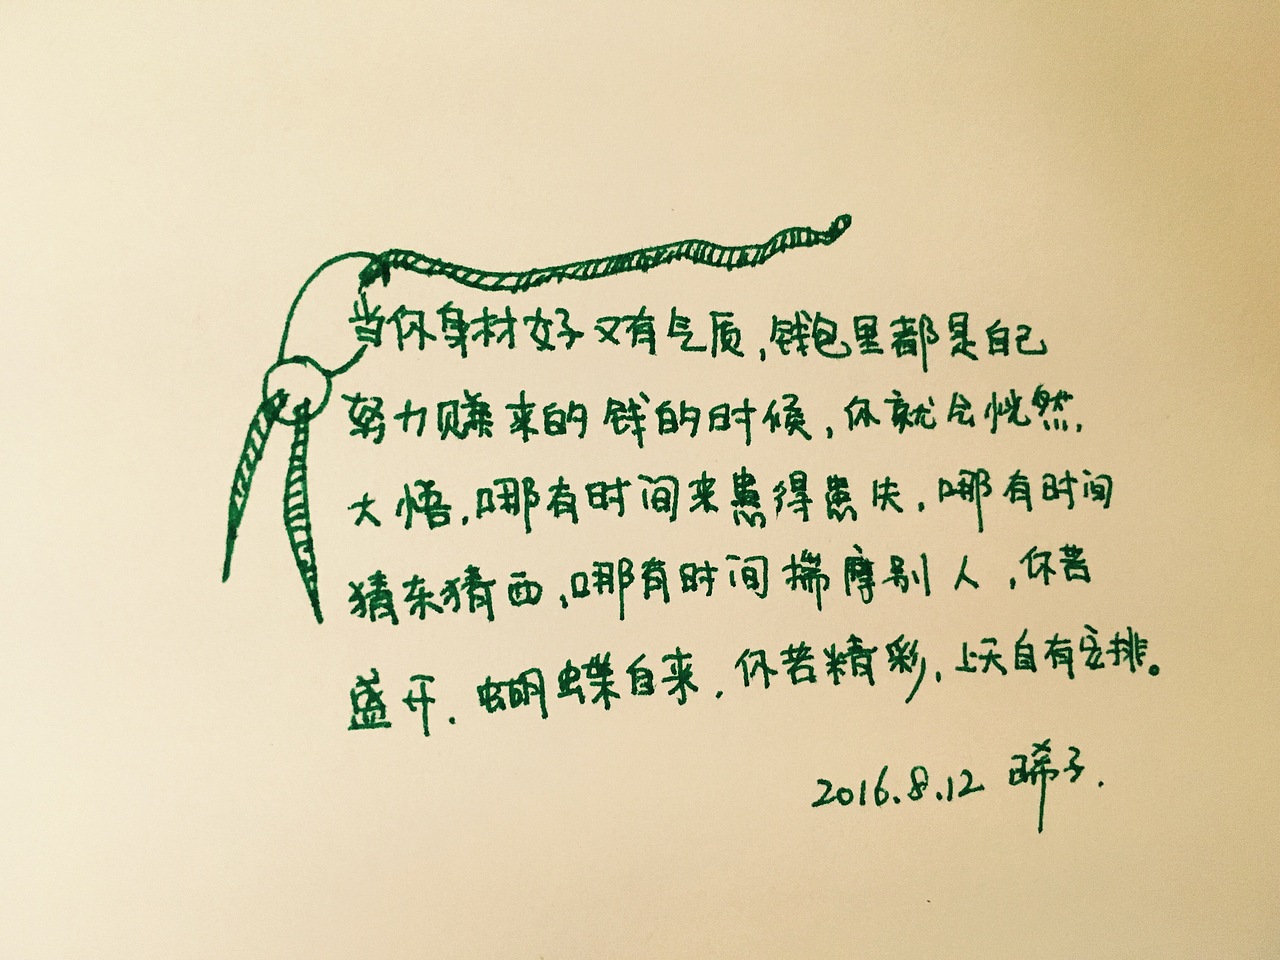 当你身材好又有气质，钱包里都是自己
努力赚来的钱的时候，你就会恍然
大悟，哪有时间来患得患失，哪有时间
猜东猜西，哪有时间揣摩别人，你若
盛开，蝴蝶自来，你若精彩，上天自有安排。
2016.8.12 晞子.